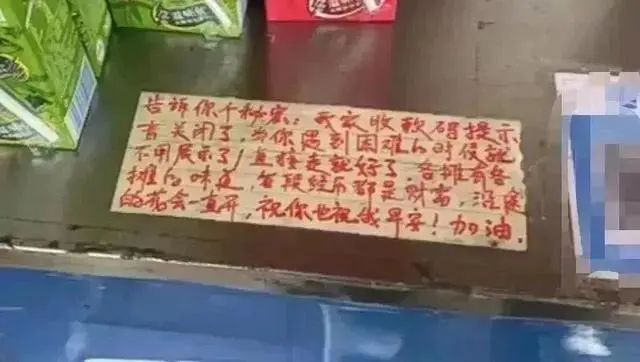 告诉你个秘密：我家收款码提示
音关闭了，当你遇到困难的时侯就
不用展示了，直接走就好了，各摊有各
摊的味道，每段经历都是财富，沿途
的花会一直开，祝你也祝我早安！加油，